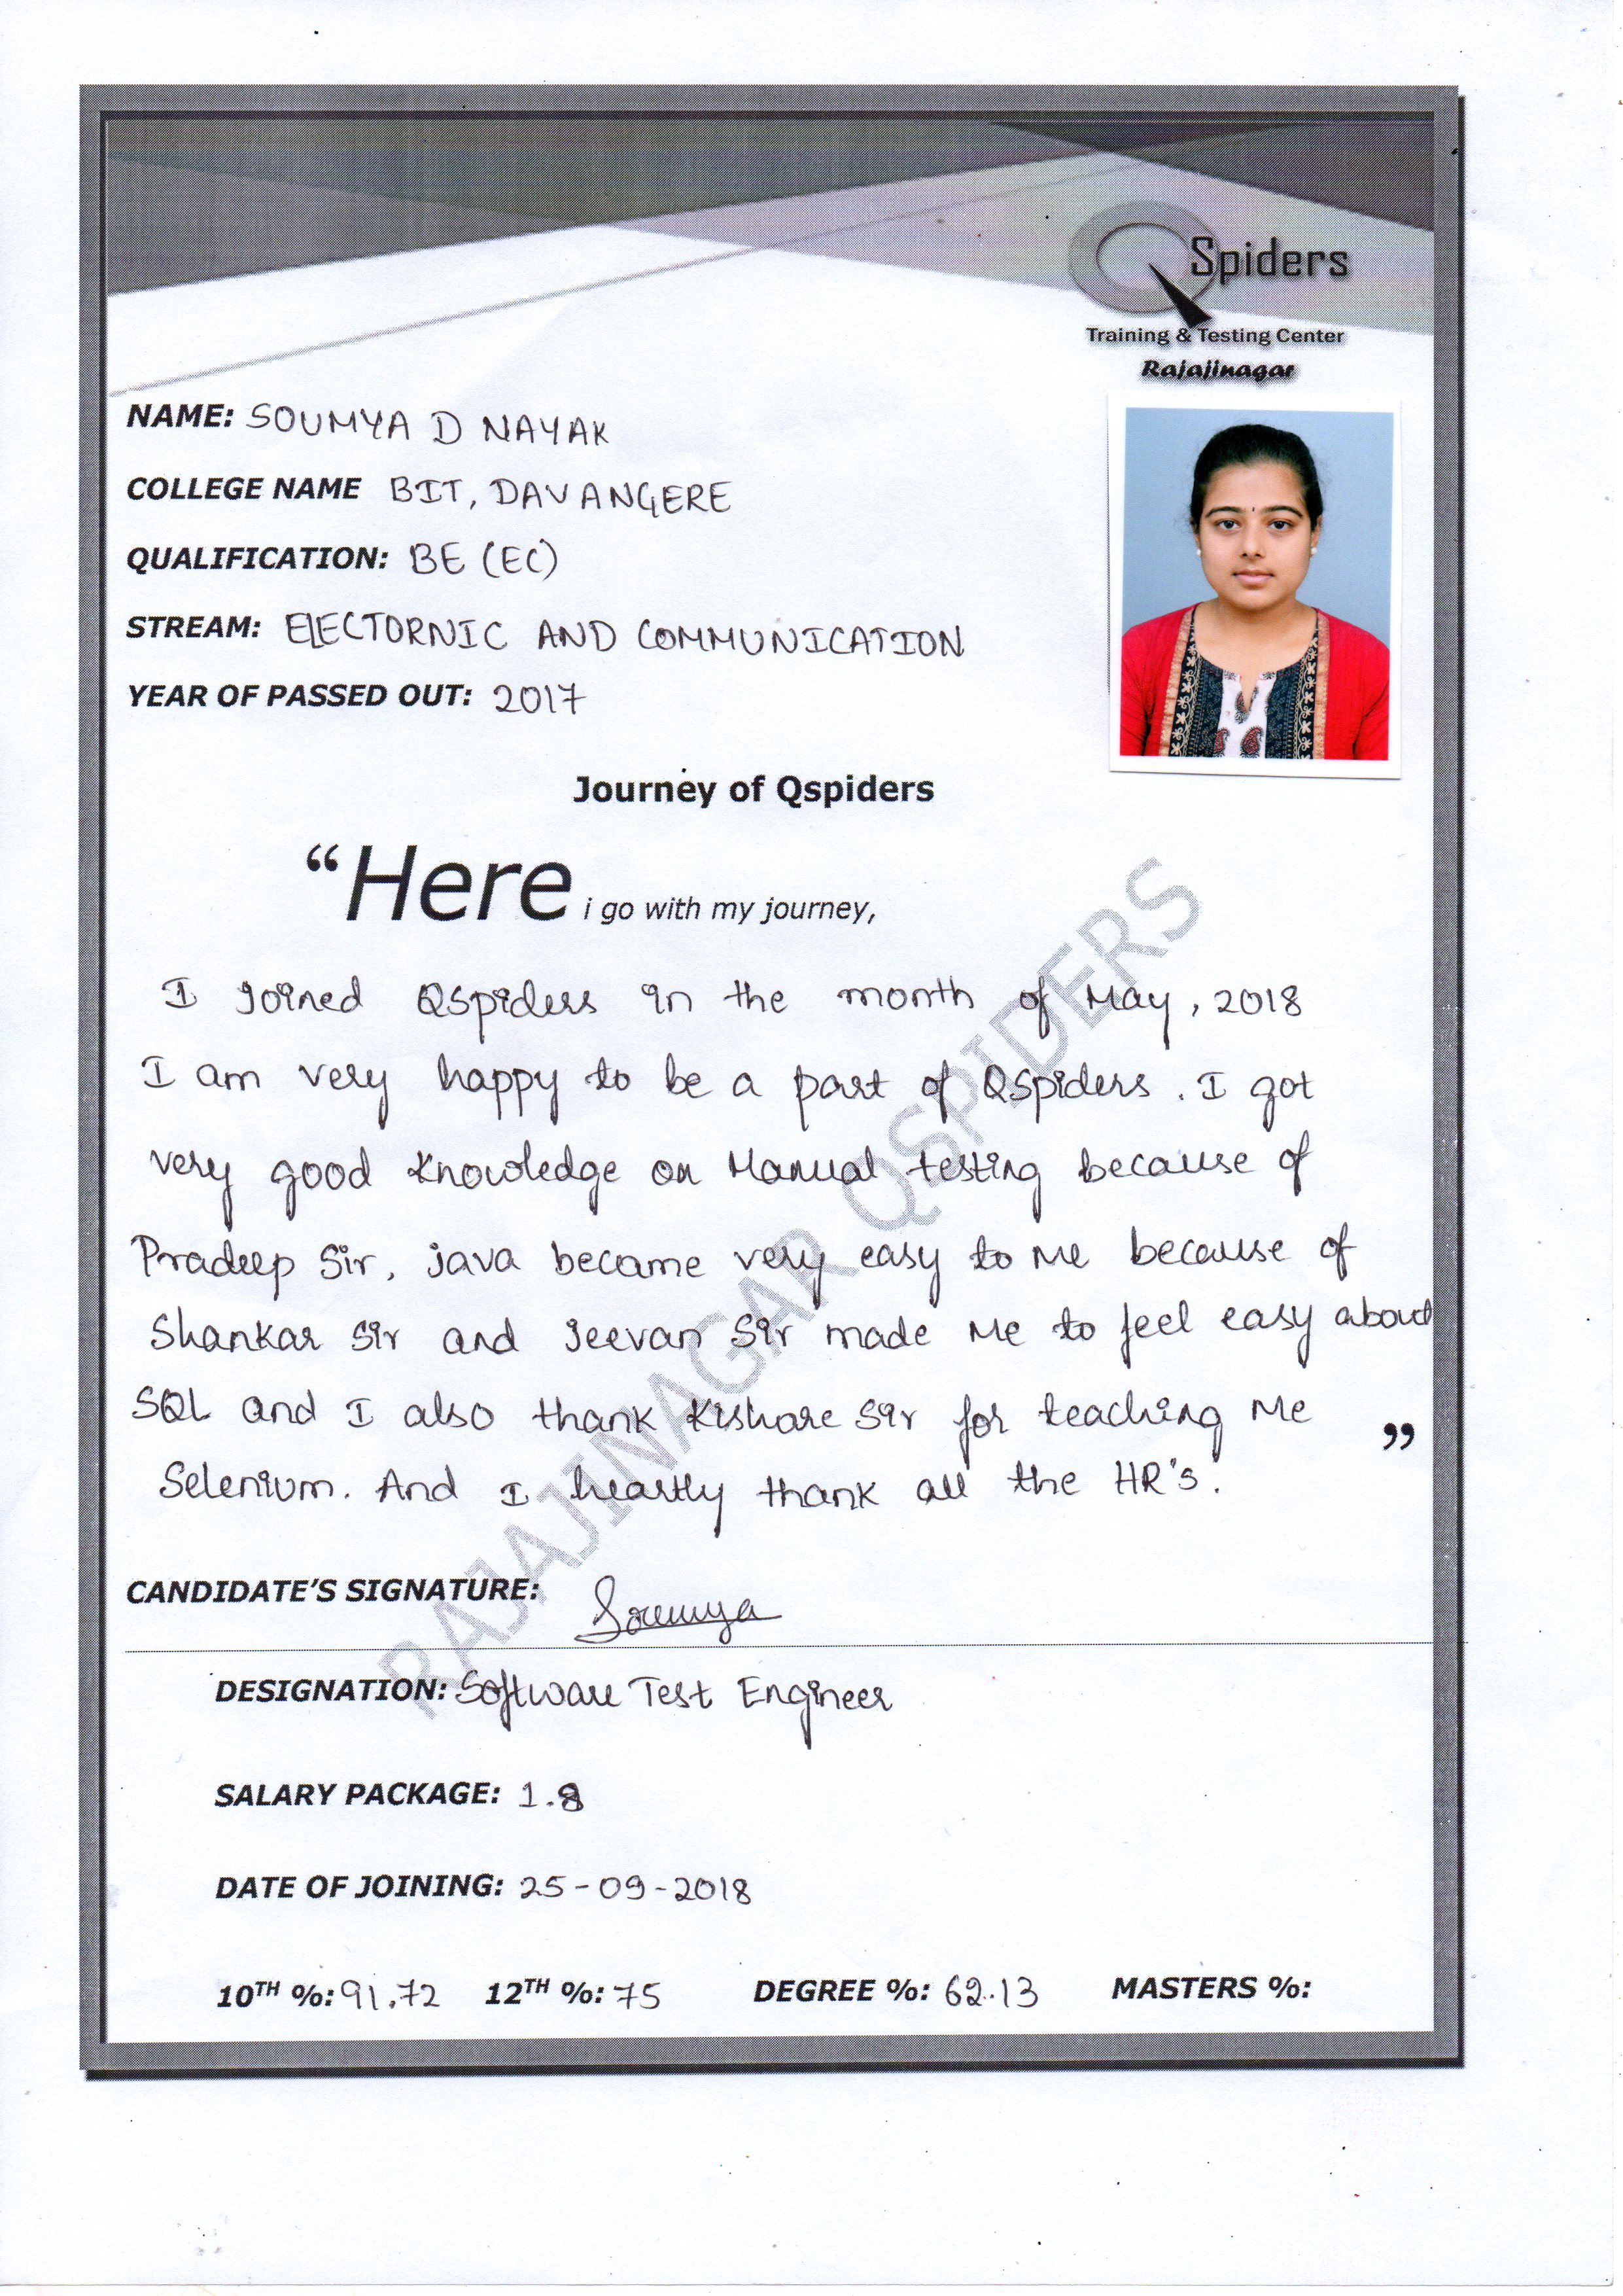 QSpiders
Training & Testing Center
Rajajinagar
NAME: SOUMYA D NAYAK
COLLEGE NAME BIT, DAVANGERE
QUALIFICATION: BE (EC)
STREAM: ELECTORNIC AND COMMUNICATION
YEAR OF PASSED OUT: 2017
Journey of Qspiders
“Here i go with my journey,
I Joined QSpiders in the month of May, 2018
I am very happy to be a part of QSpiders. I got
very good Knowledge on Manual testing because of
Pradeep Sir, java became very easy to Me because of
Shankar Sir and Jeevan Sir made Me to feel easy about
SQL and I also thank Kishore Sir for teaching Me
Selenium. And I heartly thank all the HR's.
”
RAJAJINAGAR QSPIDERS
CANDIDATE’S SIGNATURE: Soumya
DESIGNATION: Software Test Engineer
SALARY PACKAGE: 1.8
DATE OF JOINING: 25-09-2018
10TH %: 91.72 12TH %: 75 DEGREE %: 62.13 MASTERS %: